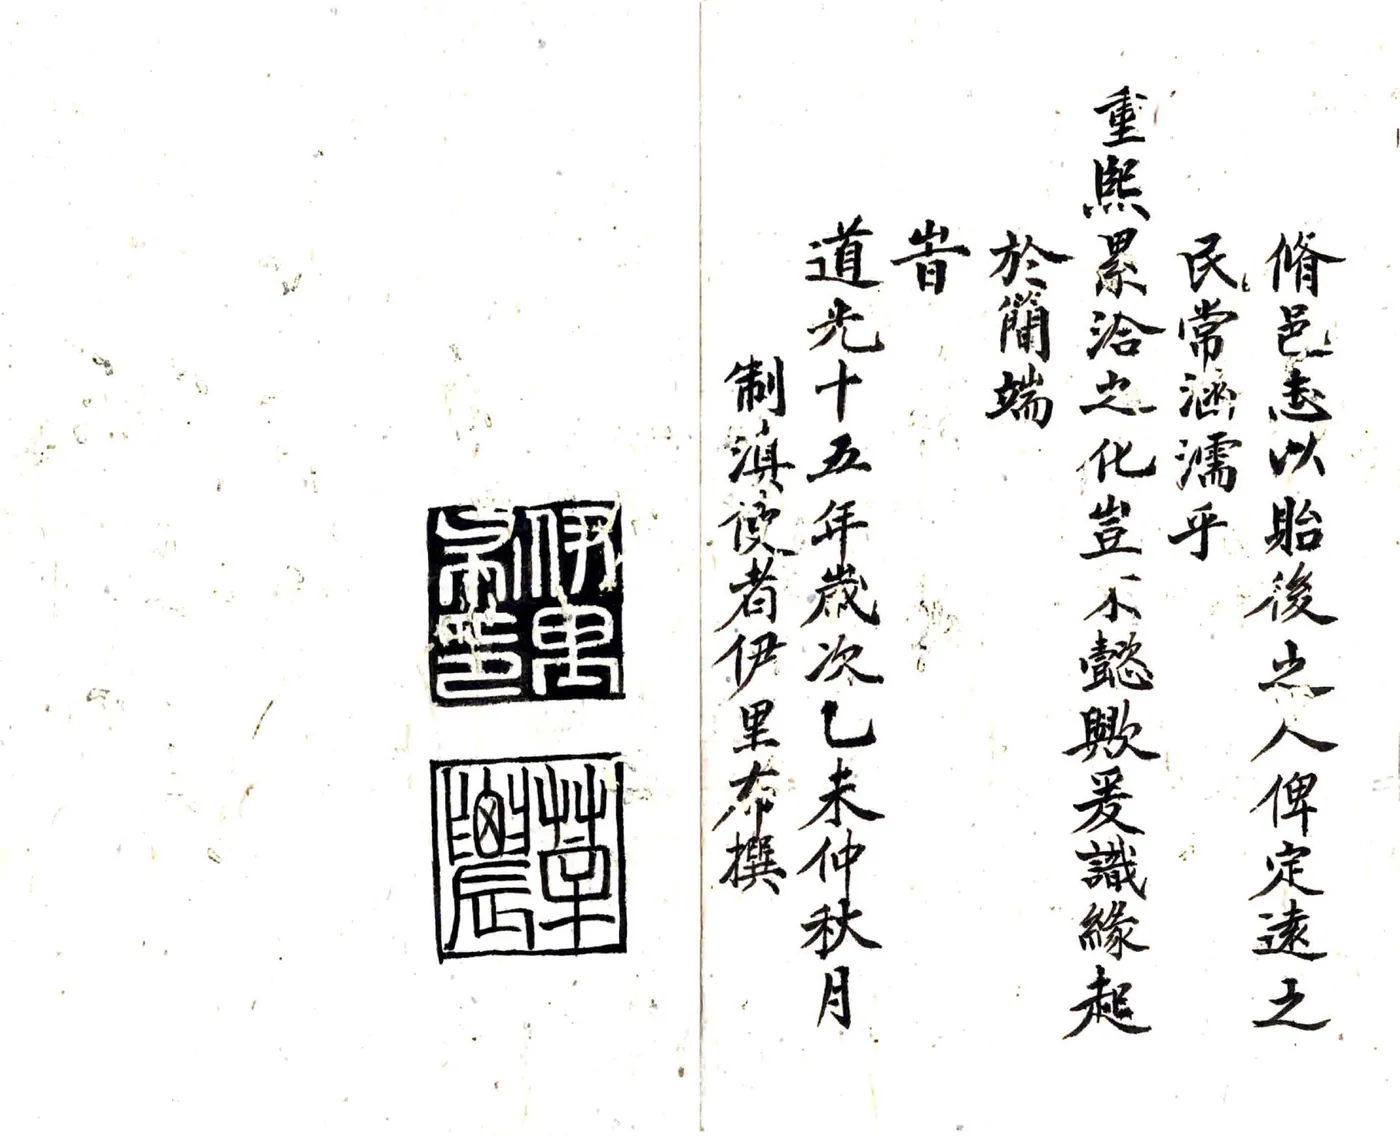 脩邑志以貽後之人俾定遠之
民常涵濡乎
重熙累洽之化豈不懿歟爰識緣起
於簡端
旹
道光十五年歲次乙未仲秋月
制滇使者伊里布撰
伊里布印
莘農